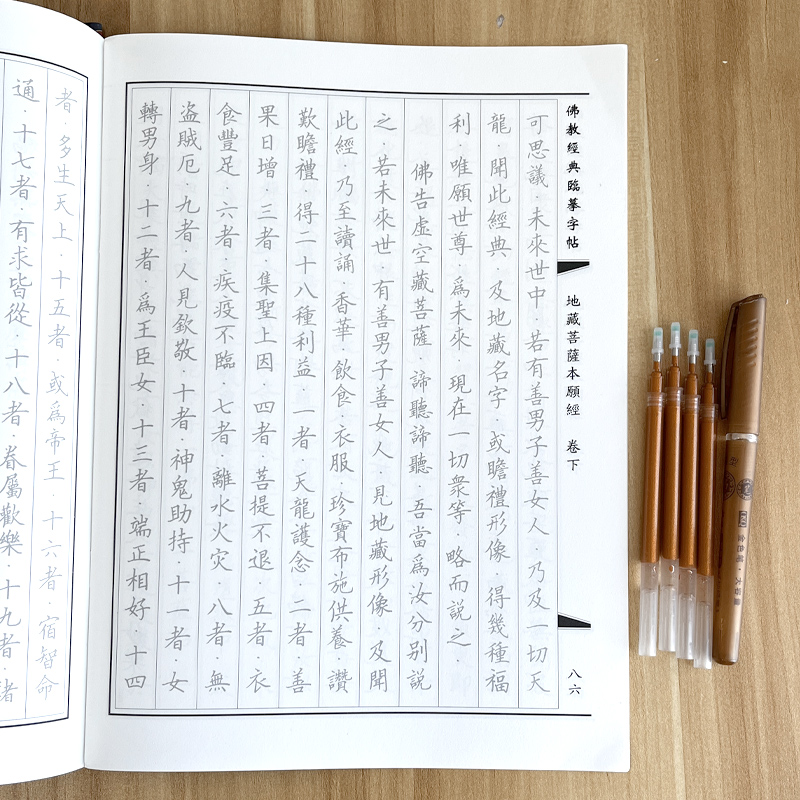 佛教經典臨摹字帖
地藏菩薩本願經 卷下
八六
可思議·未來世中·若有善男子善女人·乃及一切天
龍·聞此經典·及地藏名字·或瞻禮形像·得幾種福
利·唯願世尊·爲未來·現在一切衆等·略而説之·
佛告虛空藏菩薩·諦聽諦聽·吾當爲汝分別説
之·若未來世·有善男子善女人·見地藏形像·及聞
此經·乃至讀誦·香華·飲食·衣服·珍寶布施供養·讚
歎瞻禮·得二十八種利益·一者·天龍護念·二者·善
果日增·三者·集聖上因·四者·菩提不退·五者·衣
食豐足·六者·疾疫不臨·七者·離水火灾·八者·無
盗賊厄·九者·人見欽敬·十者·神鬼助持·十一者·女
轉男身·十二者·爲王臣女·十三者·端正相好·十四
者·多生天上·十五者·或爲帝王·十六者·宿智命
通·十七者·有求皆從·十八者·眷屬歡樂·十九者·諸
金色·大容量